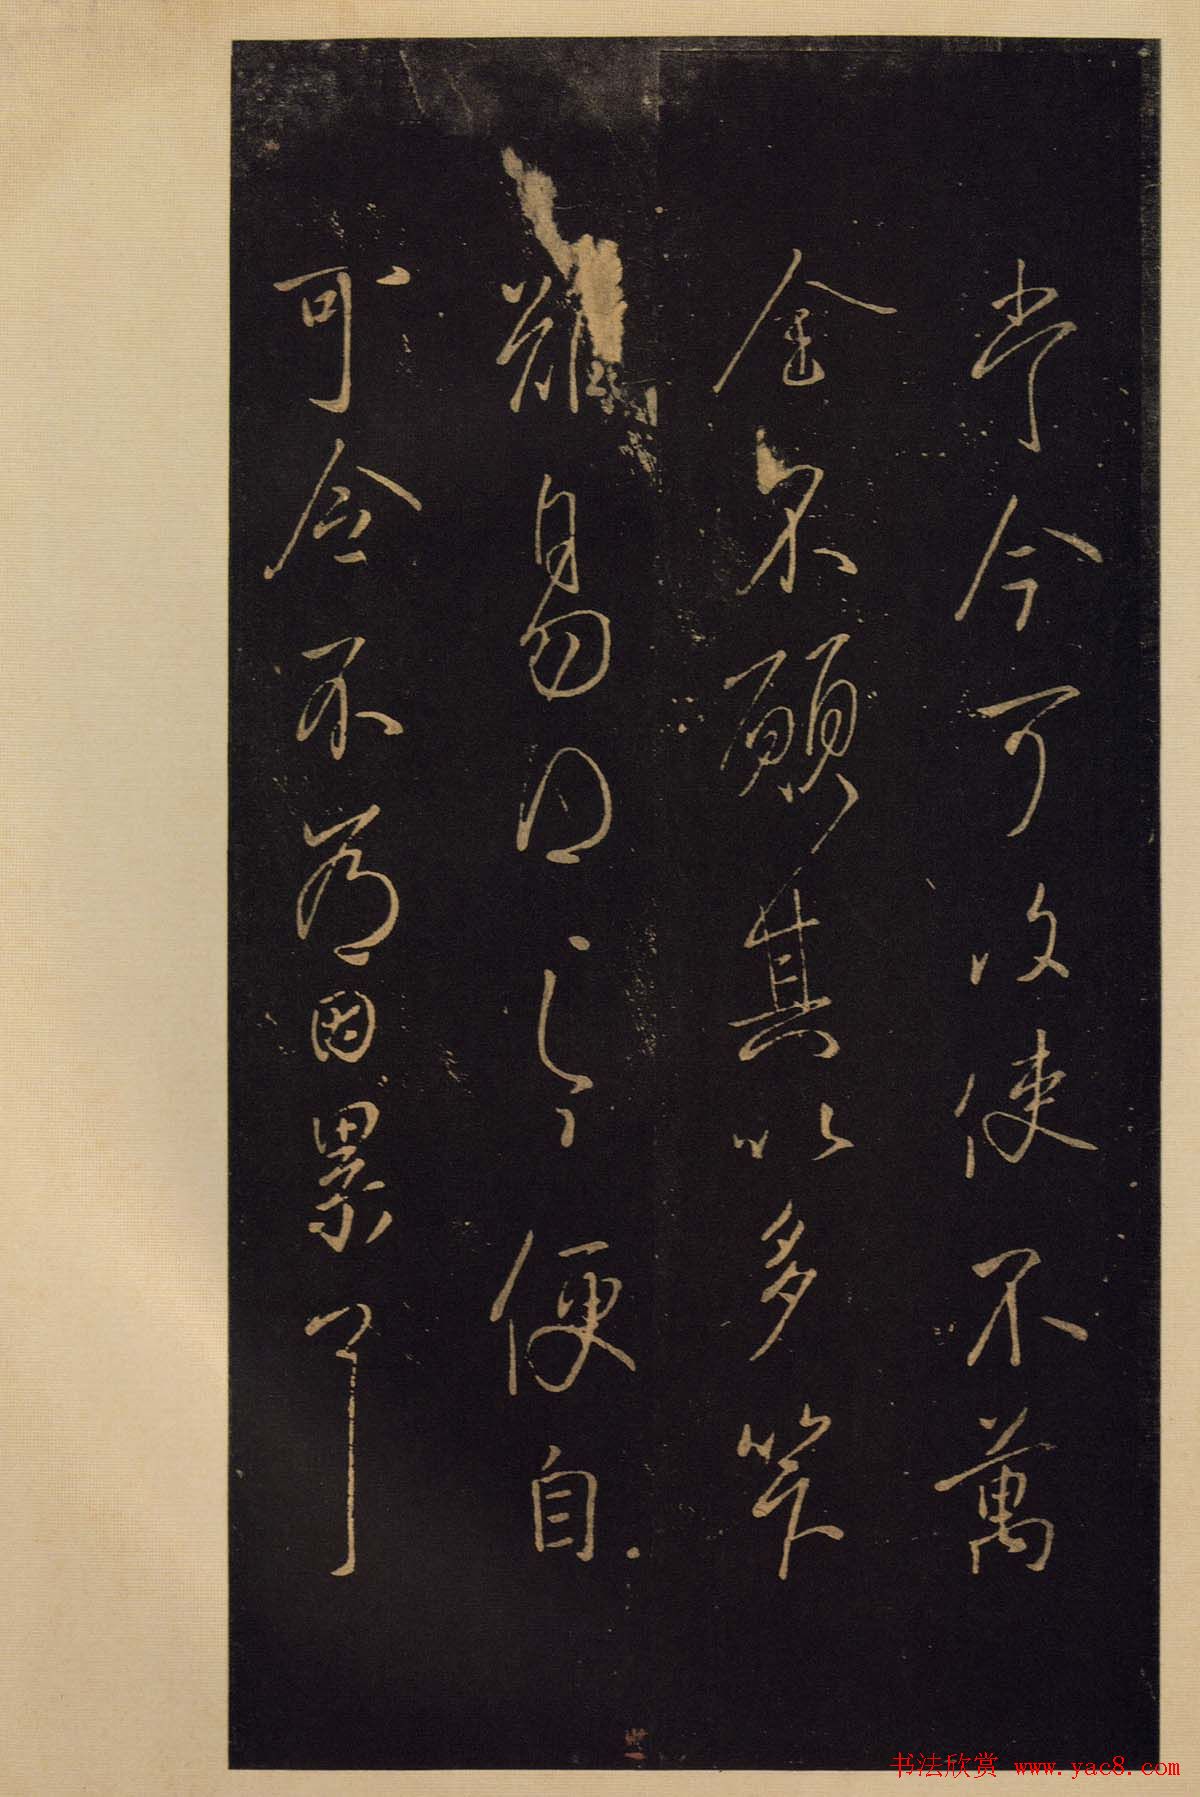 今可收使不萬
金不願其以多笇
雖易得之便自
可令不為因累耳
书法欣赏 www.yac8.com